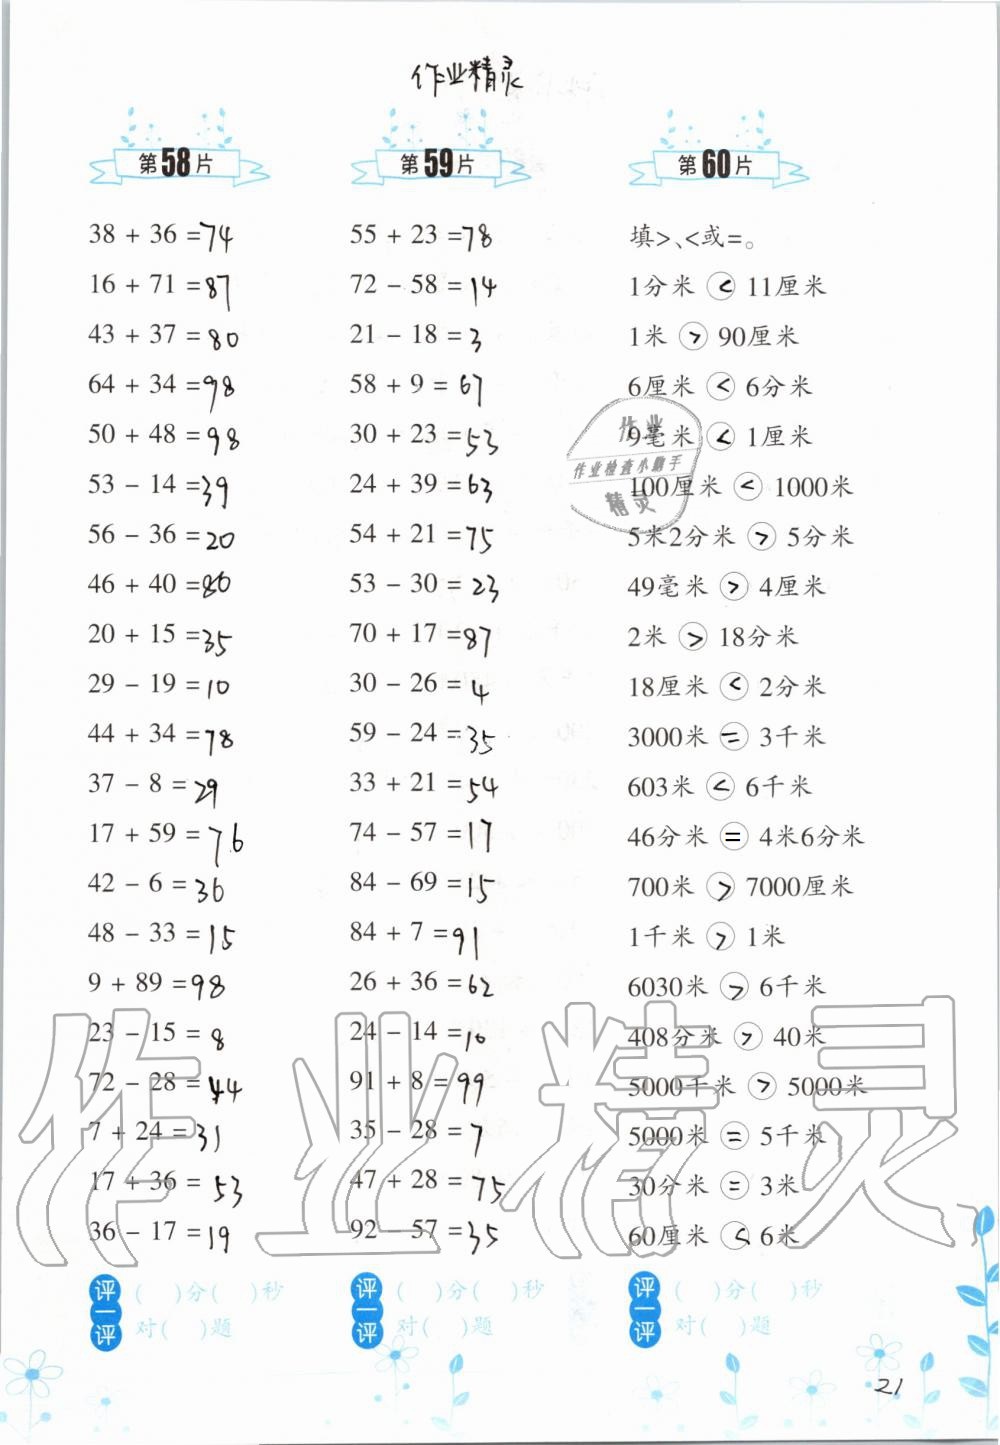 作业精灵
第58片
38 + 36 =74
16 + 71 =87
43 + 37 =80
64 + 34 =98
50 + 48 =98
53 - 14 =39
56 - 36 =20
46 + 40 =86
20 + 15 =35
29 - 19 =10
44 + 34 =78
37 - 8 =29
17 + 59 =76
42 - 6 =36
48 - 33 =15
9 + 89 =98
23 - 15 = 8
72 - 28 =44
7 + 24 =31
17 + 36 = 53
36 - 17 =19
评一评
( )分( )秒
对( )题
第59片
55 + 23 =78
72 - 58 =14
21 - 18 =3
58 + 9 = 67
30 + 23 =53
24 + 39 =63
54 + 21 =75
53 - 30 =23
70 + 17 =87
30 - 26 =4
59 - 24 =35
33 + 21 =54
74 - 57 =17
84 - 69 =15
84 + 7 =91
26 + 36 =62
24 - 14 =10
91 + 8 =99
35 - 28 = 7
47 + 28 = 75
92 - 57 =35
评一评
( )分( )秒
对( )题
第60片
填>、<或=。
1分米 < 11厘米
1米 > 90厘米
6厘米 < 6分米
9毫米 < 1厘米
100厘米 < 1000米
5米2分米 > 5分米
49毫米 > 4厘米
2米 > 18分米
18厘米 < 2分米
3000米 = 3千米
603米 < 6千米
46分米 = 4米6分米
700米 > 7000厘米
1千米 > 1米
6030米 > 6千米
408分米 > 40米
5000千米 > 5000米
5000米 = 5千米
30分米 = 3米
60厘米 < 6米
评一评
( )分( )秒
对( )题
作业
作业检查小助手
精灵
作业精灵
21